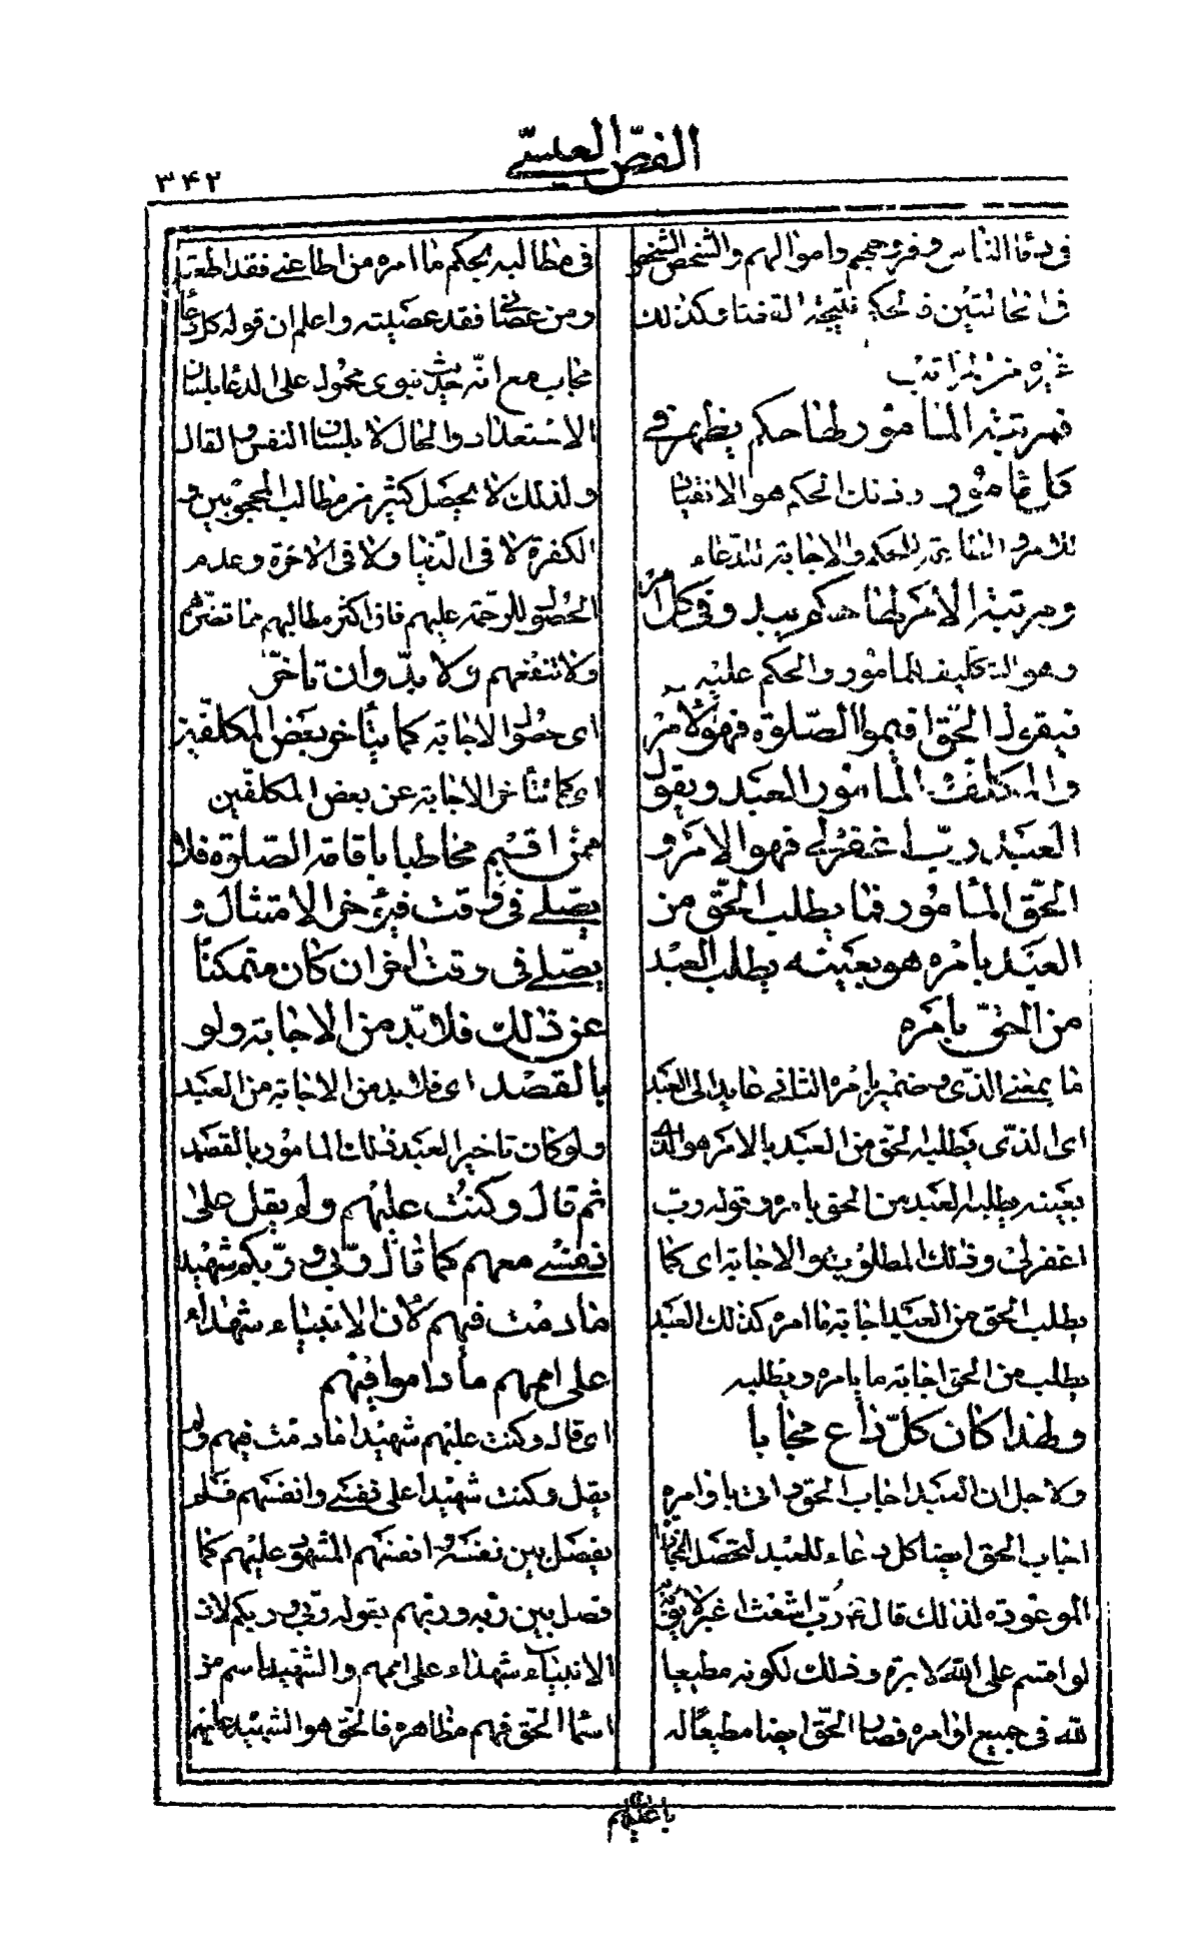 الفصّ العيسىّ
٣٤٢
فى دماء الناس وفروجهم واموالهم والشخص الشخص
فى الحالتين فالحكم نتيجة القضاء وكذلك
غيره من المراتب
فمرتبة المأمور لها حكم يظهر فى
كل مأمور وذلك الحكم هو الانقياد
للامر والقابلية للحكم والاجابة للدعاء
ومرتبة الأمر لها حكم يبدو فى كل امر
وهو التكليف للمأمور والحكم عليه
فيقول الحقّ اقيموا الصّلوة فهو الامر
والمكلّف المأمور العبد ويقول
العبد ربّ اغفرلى فهو الامر و
الحقّ المأمور فما يطلب الحقّ من
العبد بامره هو بعينه يطلب العبد
من الحقّ بامره
ما بمعنى الذّى وضمير بامره الثانى عايد الى العبد
اى الذى يطلبه الحقّ من العبد بالامر هو الذى
بعينه يطلبه العبد من الحق بامره وقوله ربّ
اغفرلى وذلك المطلوب هو الاجابة اى كما
يطلب الحق من العبد اجابة ما امره كذلك العبد
يطلب من الحق اجابة ما يامره ويطلبه
ولهذا كان كلّ داع مجابا
ولاجل ان العبد اجاب الحق واتى باوامره
اجاب الحق ايضا كل دعاء للعبد لتحصل المجازاة
الموعودة لذلك قال ع م ربّ اشعث اغبر لا يؤبه
لو اقسم على اللّه لابرّه وذلك لكونه مطيعا
للّه فى جميع اوامره فصار الحقّ ايضا مطيعا له
فى مطالبه بحكم ما امره من اطاعنى فقد اطعته
ومن عصانى فقد عصيته واعلم ان قوله كل داع
مجاب مع انّه حديث نبوى محمول على الدعا بلسان
الاستعداد والحال لا بلسان النفس والقال
ولذلك لا يحصل كثير من مطالب المحجوبين و
الكفرة لا فى الدّنيا ولا فى الاخرة وعدم
الحصول للرحمة عليهم فان اكثر مطالبهم مما تضرّهم
ولا تنفعهم ولا بدّ وان تأخّر
اى حصول الاجابة كما يتأخر بعض المكلّفين
اى كما تتأخر الاجابة عن بعض المكلفين
ممّن اقيم مخاطبا باقامة الصّلوة فلا
يصّلى فى وقت فيؤخر الامتثال و
يصّلى فى وقت اخر ان كان متمكنًا
عن ذلك فلا بّد من الاجابة ولو
بالقصد اى فلا بد من الاجابة من العبد
ولو كان تاخير العبد ذلك المأمور بالقصد
ثم قال وكنت عليهم ولم يقل على
نفسى معهم كما قال ربّى وربّكم شهيدا
ما دمت فيهم لأن الانبياء شهداء
على اممهم ما داموا فيهم
اى قال وكنت عليهم شهيدا ما دمت فيهم ولم
يقل وكنت شهيدا على نفسى وانفسهم فلم
يفصل بين نفسه وانفسهم المشهود عليهم كما
فصل بين ربه وربّهم بقوله ربّى وربكم لان
الانبياء شهداء على اممهم والشهيد اسم من
اسما الحق فهم مظاهره فالحق هو الشهيد عليهم
باعيانهم